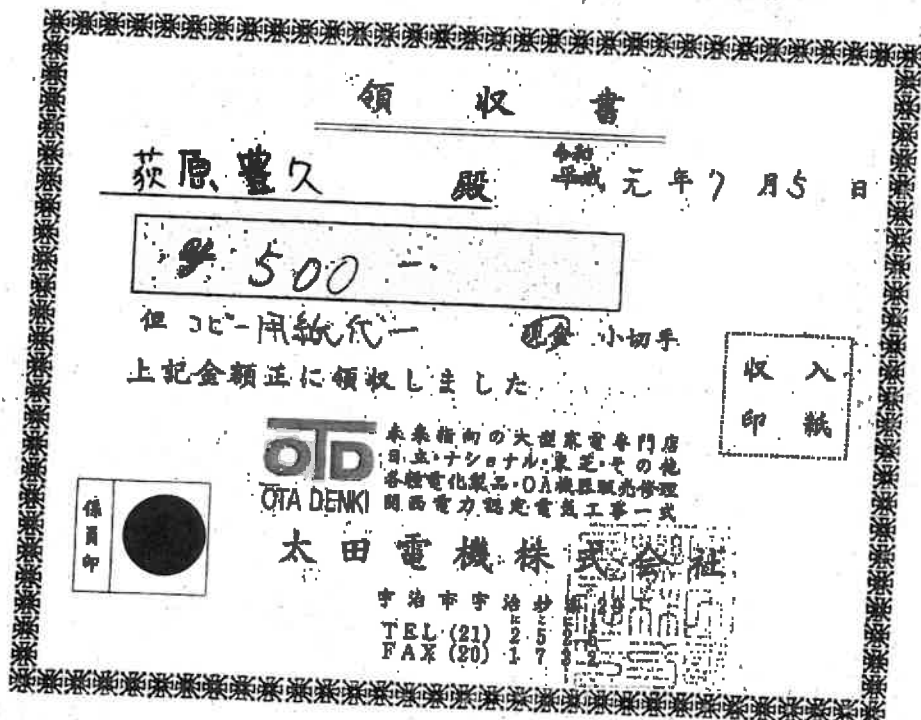 領収書
荻原豊久 殿 令和 平成 元年7月5日
¥500-
但 コピー用紙代ー 現金 小切手
上記金額正に領収しました
収入
印紙
OTD
OTA DENKI
未来指向の大型家電専門店
日立・ナショナル・東芝・その他
各種電化製品・OA機器販売修理
関西電力認定電気工事一式
係員印
太田電機株式会社
宇治市宇治妙
TEL (21) 25
FAX (20) 1732